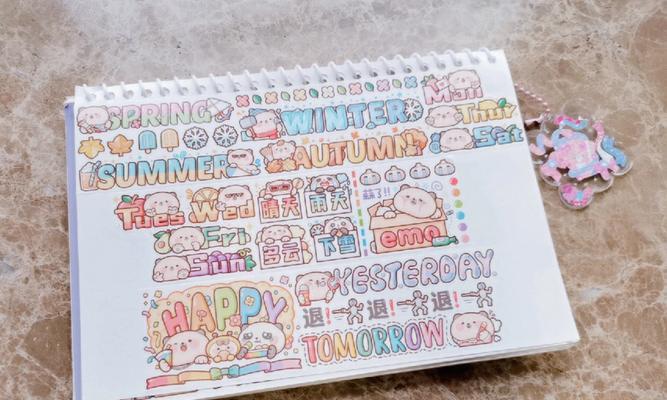 SPRING
WINTER
Mon
Thur
SUMMER
AUTUMN
Sat
Tues Wed
晴天
雨天
Fri
Sun
多云
下雪
emo
HAPPY
YESTERDAY
退! 退! 退!
TOMORROW